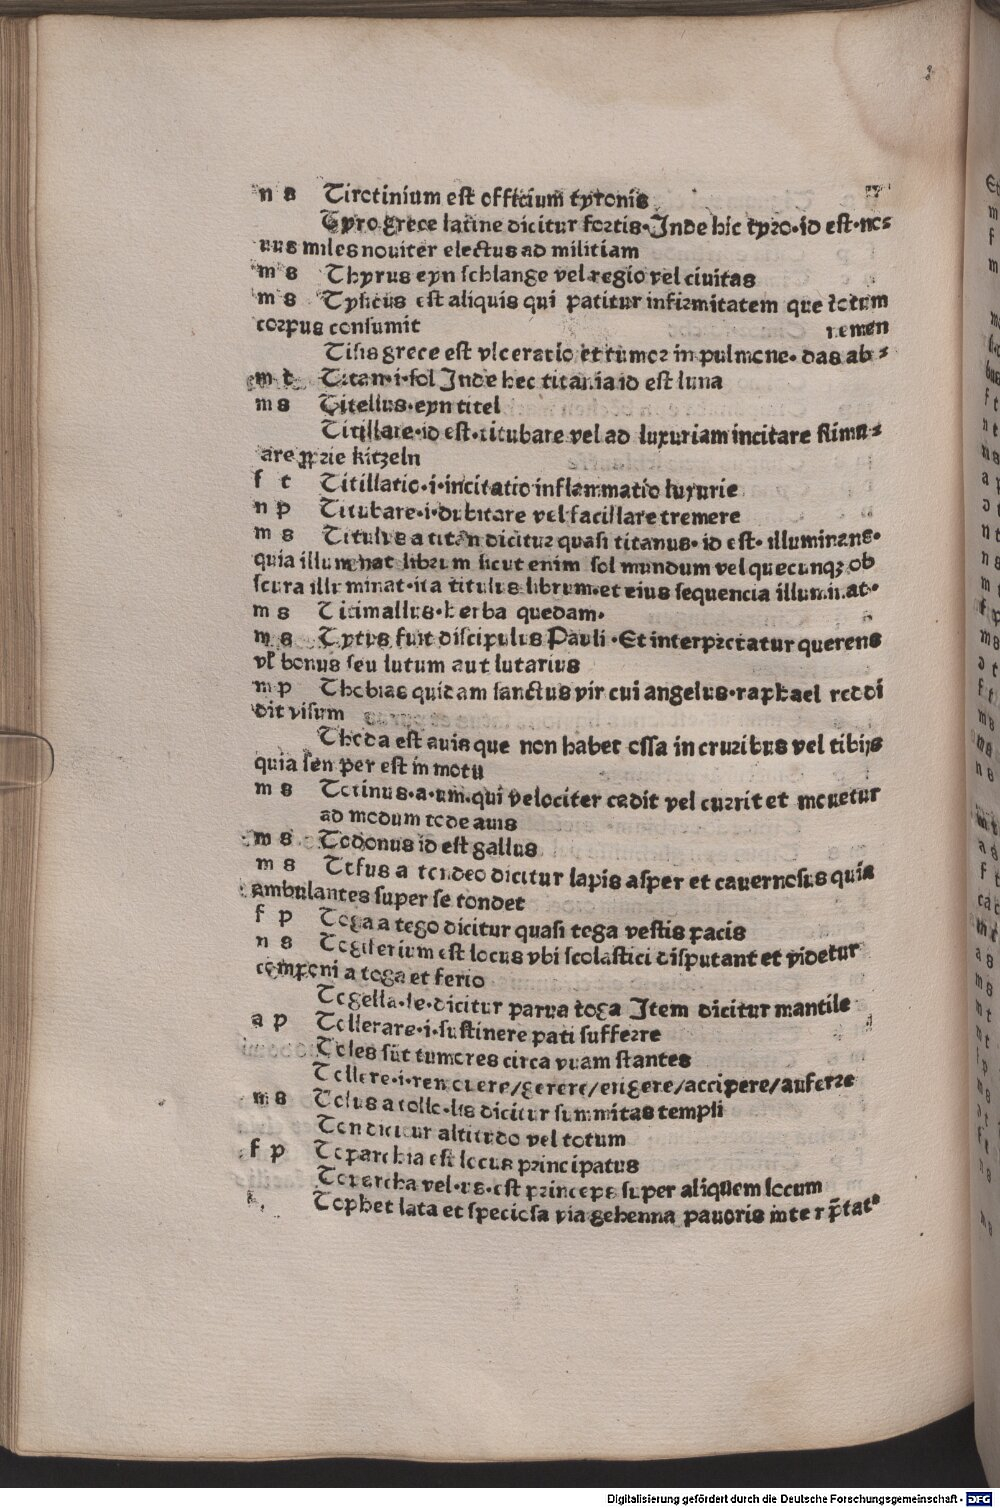 n s Tirocinium est officium tyronis
Tyro grece latine dicitur fortis·Inde hic tyro·id est·no⸗
uus miles nouiter electus ad militiam
m s Thyrus eyn schlange vel regio vel ciuitas
m s Tysicus est aliquis qui patitur infirmitatem que totum
corpus consumit nemen
Tisis grece est vlceratio et tumor in pulmone· das ab⸗
m t Titan·i·sol Inde hec titania id est luna
m s Titellus·eyn titel
Titillare·id est·titubare vel ad luxuriam incitare stimu⸗
are ꝓprie kitzeln
f t Titillatio·i·incitatio inflammatio luxurie
n p Titubare·i·dubitare vel facillare tremere
m s Titulus a titan dicitur quasi titanus·id est·illuminans·
quia illuminat librum sicut enim sol mundum vel quecunqꝫ ob
scura illuminat·ita titulus librum·et eius sequencia illuminat·
m s Titimallus·herba quedam·
m s Tytus fuit discipulus Pauli·Et interpretatur querens
vl̄ bonus seu lutum aut lutarius
m p Thobias quidam sanctus vir cui angelus·raphael reddi
dit visum
Thoda est auis que non habet ossa in cruribus vel tibijs
quia semper est in motu
m s Totinus·a·um·qui velociter cadit vel currit et mouetur
ad modum tode auis
m s Todonus id est gallus
m s Tofus a tondeo dicitur lapis asper et cauernosus quia
ambulantes super se tondet
f p Toga a tego dicitur quasi tega vestis pacis
n s Togiferium est locus vbi scolastici disputant et videtur
componi a toga et ferio
Togella·le·dicitur parua toga Item dicitur mantile
a p Tollerare·i·sustinere pati sufferre
Toles sūt tumores circa vuam stantes
Tollere·i·remouere/gerere/erigere/accipere/auferre
m s Tolus a tollo·lis dicitur summitas templi
Ton dicitur altitudo vel totum
f p Toparchia est locus principatus
Toparcha vel·us·est princeps super aliquem locum
Tophet lata et speciosa via gehenna pauoris interp̄tatꝰ
Digitalisierung gefördert durch die Deutsche Forschungsgemeinschaft · DFG